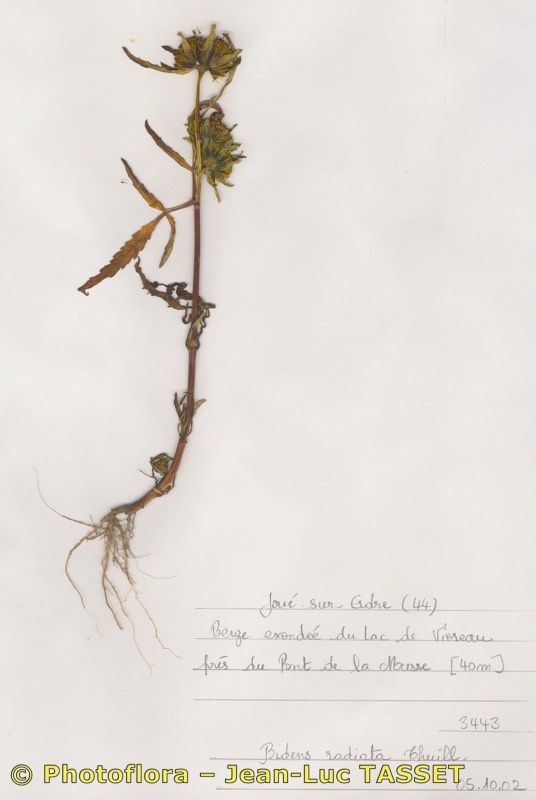 Joué-sur-Erdre (44)
Berge exondée du Lac de Vioreau
près du Pont de la Musse [40m]
3443
Bidens radiata Thuill.
05.10.02
© Photoflora – Jean-Luc TASSET